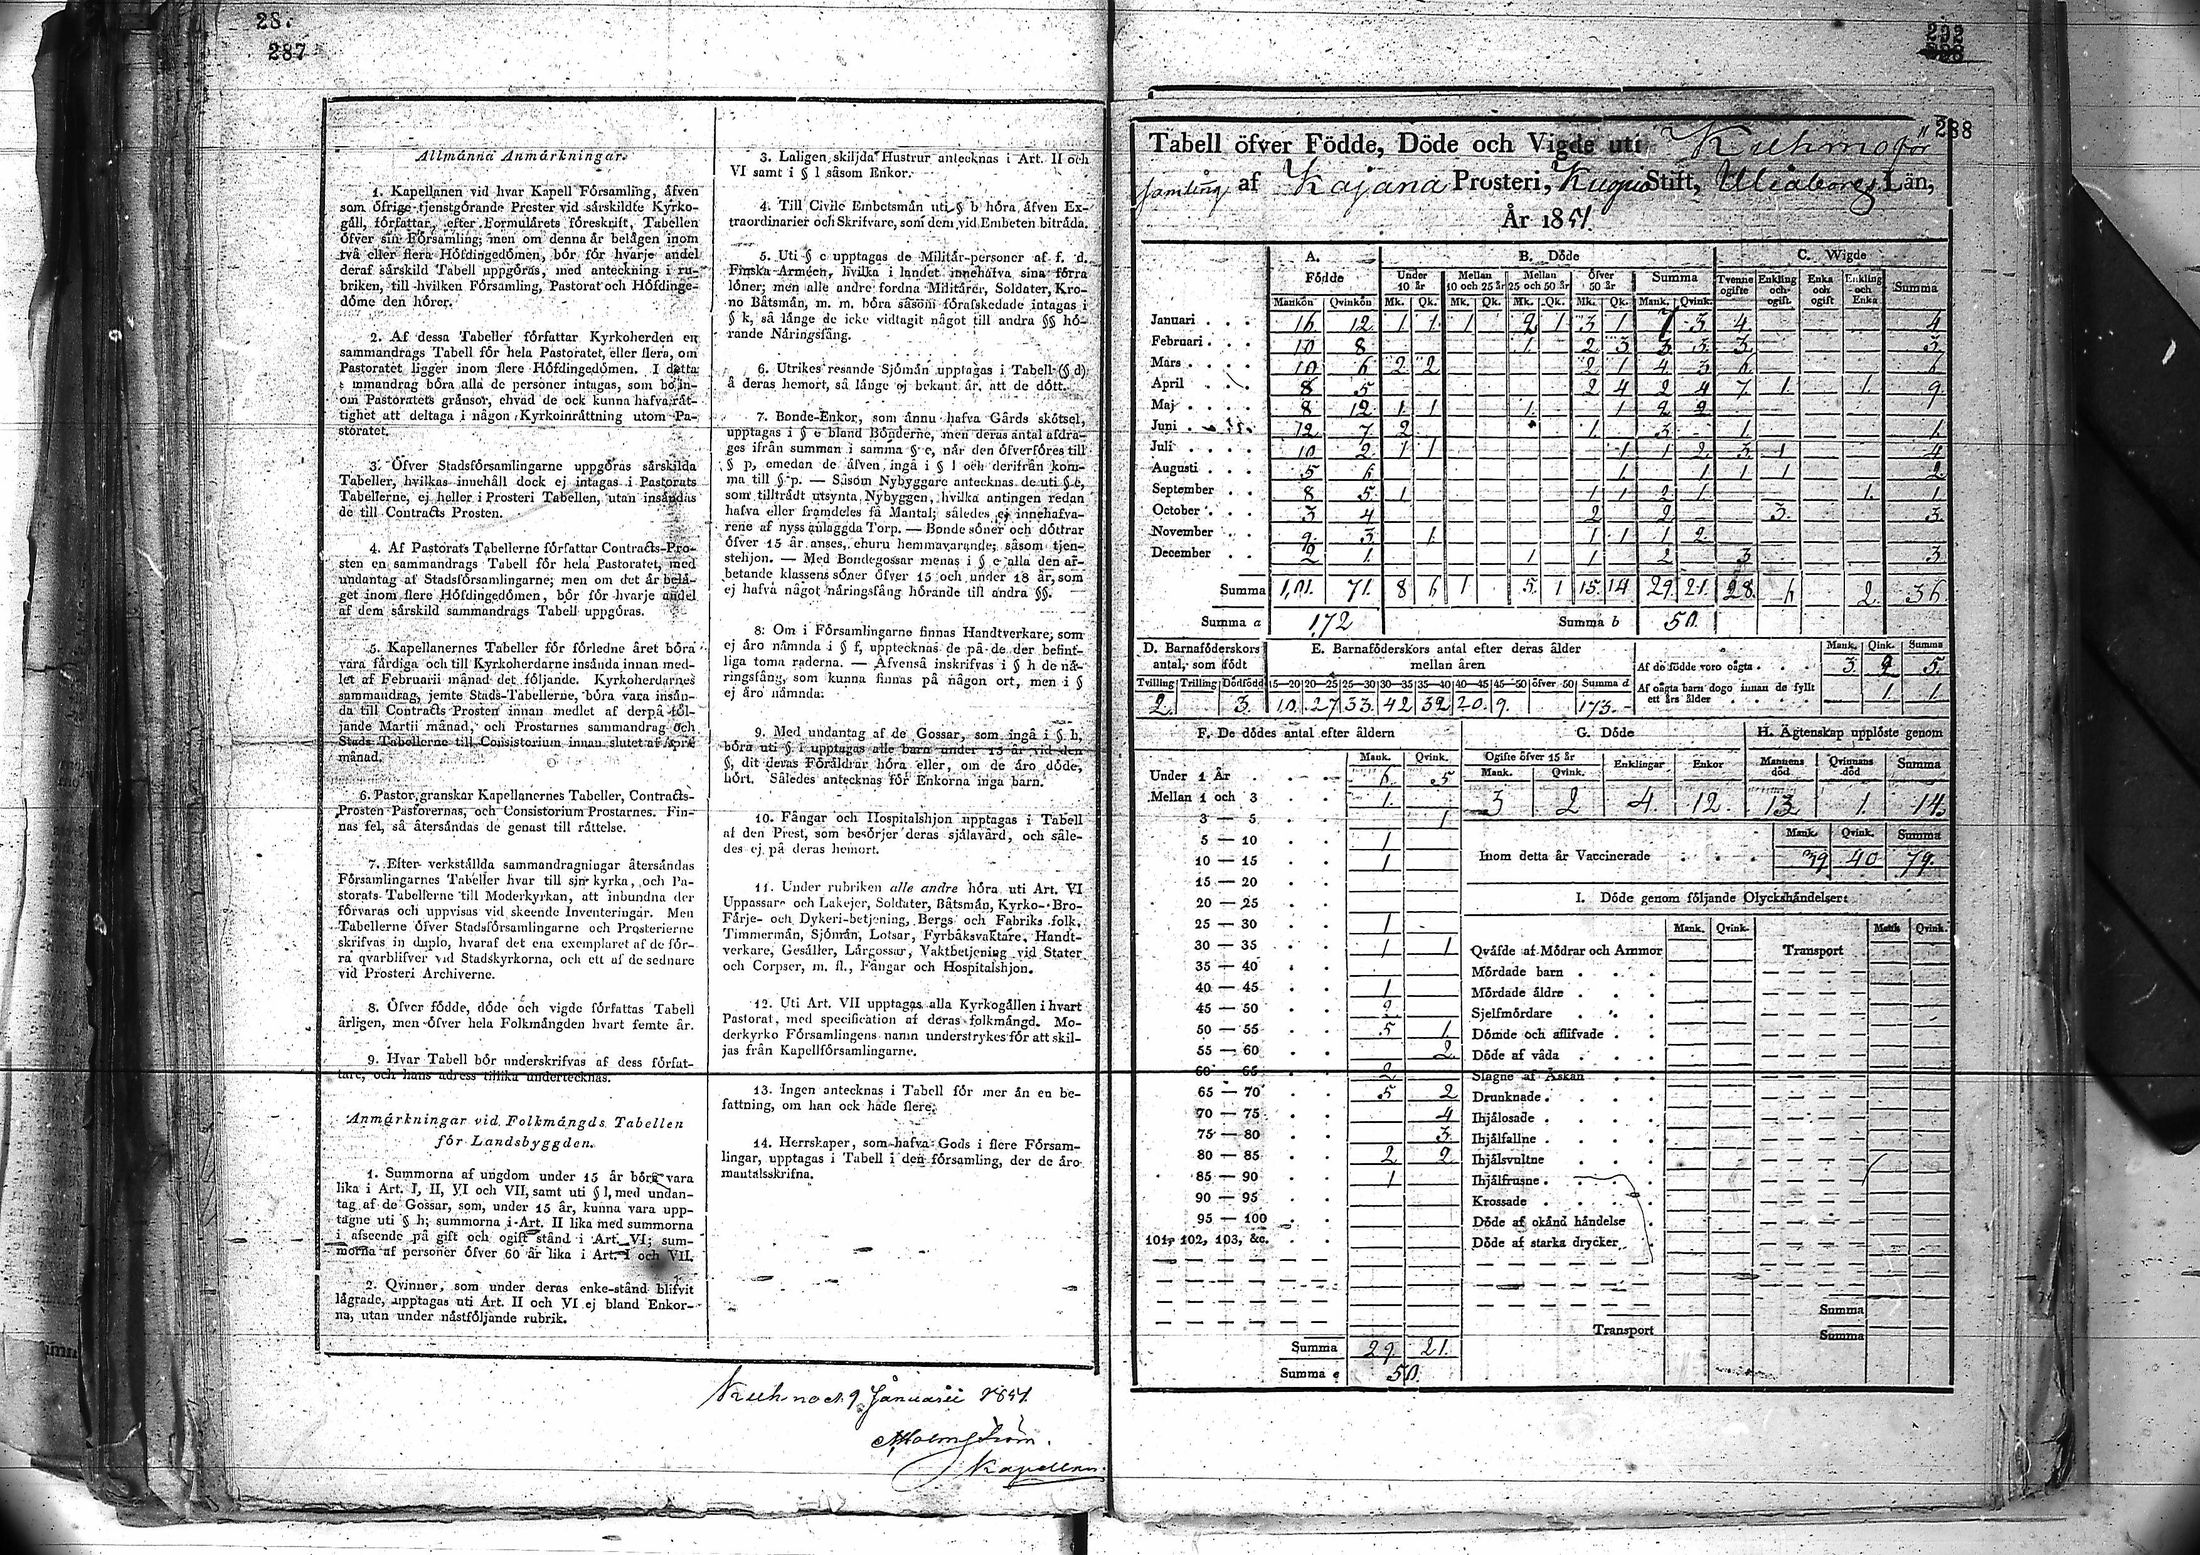 28.
287
Allmänna Anmärkningar.
1. Kapellanen vid hvar Kapell Församling, äfven
som öfrige tjenstgörande Prester vid särskildte Kyrko-
gäll, författar, efter Formulärets föreskrift, Tabellen
öfver sin Församling; men om denna är belägen inom
två eller flera Höfdingedömen, bör för hvarje andel
deraf särskild Tabell uppgöras, med anteckning i ru-
briken, till hvilken Församling, Pastorat och Höfdinge-
döme den hörer.
2. Af dessa Tabeller författar Kyrkoherden en
sammandrags Tabell för hela Pastoratet, eller flera, om
Pastoratet ligger inom flere Höfdingedömen. I detta
sammandrag böra alla de personer intagas, som bo in-
om Pastoratets gränsor, ehvad de ock kunna hafva rät-
tighet att deltaga i någon Kyrkoinrättning utom Pa-
storatet.
3. Öfver Stadsförsamlingarne uppgöras särskilda
Tabeller, hvilkas innehåll dock ej intagas i Pastorats
Tabellerne, ej heller i Prosteri Tabellen, utan insändas
de till Contracts Prosten.
4. Af Pastorats Tabellerne författar Contracts-Pro-
sten en sammandrags Tabell för hela Pastoratet, med
undantag af Stadsförsamlingarne; men om det är belä-
get inom flere Höfdingedömen, bör för hvarje andel
af dem särskild sammandrags Tabell uppgöras.
5. Kapellanernes Tabeller för förledne året böra
vara färdiga och till Kyrkoherdarne insända innan med-
let af Februarii månad det följande. Kyrkoherdarnes
sammandrag, jemte Stads-Tabellerne, böra vara insän-
da till Contracts Prosten innan medlet af derpå föl-
jande Martii månad, och Prostarnes sammandrag och
Stads Tabellerne till Consistorium innan slutet af April
månad.
6. Pastor granskar Kapellanernes Tabeller, Contracts-
Prosten Pastorernas, och Consistorium Prostarnes. Fin-
nas fel, så återsändas de genast till rättelse.
7. Efter verkställda sammandragningar återsändas
Församlingarnes Tabeller hvar till sin kyrka, och Pa-
storats-Tabellerne till Moderkyrkan, att inbundna der
förvaras och uppvisas vid skeende Inventeringar. Men
Tabellerne öfver Stadsförsamlingarne och Prosterierne
skrifvas in duplo, hvaraf det ena exemplaret af de för-
ra qvarblifver vid Stadskyrkorna, och ett af de sednare
vid Prosteri Archiverne.
8. Öfver födde, döde och vigde författas Tabell
årligen, men öfver hela Folkmängden hvart femte år.
9. Hvar Tabell bör underskrifvas af dess förfat-
tare, och hans adress tillika undertecknas.
Anmärkningar vid Folkmängds Tabellen
för Landsbyggden.
1. Summorna af ungdom under 15 år böra vara
lika i Art. I, II, VI och VII, samt uti § l, med undan-
tag af de Gossar, som, under 15 år, kunna vara upp-
tagne uti § h; summorna i Art. II lika med summorna
i afseende på gift och ogift stånd i Art. VI; sum-
morna af personer öfver 60 år lika i Art. I och VII.
2. Qvinnor, som under deras enke-stånd blifvit
lägrade, upptagas uti Art. II och VI ej bland Enkor-
na, utan under nästföljande rubrik.
3. Laligen skiljda Hustrur antecknas i Art. II och
VI samt i § l såsom Enkor.
4. Till Civile Embetsmän uti § b höra äfven Ex-
traordinarier och Skrifvare, som dem vid Embeten biträda.
5. Uti § c upptagas de Militär-personer af f. d.
Finska Arméen, hvilka i landet innehafva sina förra
löner; men alle andre fordna Militärer, Soldater, Kro-
no Båtsmän, m. m. böra såsom förafskedade intagas i
§ k, så länge de icke vidtagit något till andra §§ hö-
rande Näringsfång.
6. Utrikes resande Sjömän upptagas i Tabell (§ d)
å deras hemort, så länge ej bekant är, att de dött.
7. Bonde-Enkor, som ännu hafva Gårds skötsel,
upptagas i § e bland Bönderne, men deras antal afdra-
ges ifrån summen i samma § e, när den öfverföres till
§ p, emedan de äfven ingå i § l och derifrån kom-
ma till § p. — Såsom Nybyggare antecknas de uti § e,
som tillträdt utsynta Nybyggen, hvilka antingen redan
hafva eller framdeles få Mantal; således ej innehafva-
rene af nyss anlaggda Torp. — Bonde söner och döttrar
öfver 15 år anses, ehuru hemmavarande, såsom tjen-
stehjon. — Med Bondegossar menas i § e alla den ar-
betande klassens söner öfver 15 och under 18 år, som
ej hafva något näringsfång hörande till andra §§.
8. Om i Församlingarne finnas Handtverkare, som
ej äro nämnda i § f, upptecknas de på de der befint-
liga toma raderna. — Äfvenså inskrifvas i § h de nä-
ringsfång, som kunna finnas på någon ort, men i §
ej äro nämnda.
9. Med undantag af de Gossar, som ingå i § h,
böra uti § i upptagas alle barn under 15 år vid den
§, dit deras Föräldrar höra eller, om de äro döde,
hört. Således antecknas för Enkorna inga barn.
10. Fångar och Hospitalshjon upptagas i Tabell
af den Prest, som besörjer deras själavård, och såle-
des ej på deras hemort.
11. Under rubriken alle andre höra uti Art. VI
Uppassare och Lakejer, Soldater, Båtsmän, Kyrko- Bro-
Färje- och Dykeri-betjening, Bergs och Fabriks folk,
Timmermän, Sjömän, Lotsar, Fyrbåksvaktare, Handt-
verkare, Gesäller, Lärgossar, Vaktbetjening vid Stater
och Corpser, m. fl., Fångar och Hospitalshjon.
12. Uti Art. VII upptagas alla Kyrkogällen i hvart
Pastorat, med specification af deras folkmängd. Mo-
derkyrko Församlingens namn understrykes för att skil-
jas från Kapellförsamlingarne.
13. Ingen antecknas i Tabell för mer än en be-
fattning, om han ock hade flere.
14. Herrskaper, som hafva Gods i flere Försam-
lingar, upptagas i Tabell i den församling, der de äro
mantalsskrifna.
Kuhmo d. 9 Januarii 1851.
Holmström.
Kapellan.
288
Tabell öfver Födde, Döde och Vigde uti Kuhmo för
samling af Kajana Prosteri, Kuopio Stift, Uleåborgs Län,
År 1851.
A. Födde B. Döde C. Wigde
Under 10 år Mellan 10 och 25 år Mellan 25 och 50 år Öfver 50 år Summa Tvenne ogifte Enkling och ogift. Enka och ogift Enkling och Enka Summa
Mankön Qvinkön Mk. Qk. Mk. Qk. Mk. Qk. Mk. Qk. Mank. Qvink.
Januari 16 12 1 1 1 2 1 3 1 7 3 4 4
Februari 10 8 1 2 3 3 3 3 3
Mars 10 6 2 2 2 1 4 3 6 6
April 8 5 2 4 2 4 7 1 1 9
Maj 8 12 1 1 1 1 2 2
Juni 12 7 2 1 3 1 1
Juli 10 2 1 1 1 1 2 3 1 4
Augusti 5 6 1 1 1 1 2
September 8 5 1 1 1 2 1 1 1
October 3 4 2 2 3 3
November 9 3 1 1 1 1 2
December 2 1 1 1 2 3 3
Summa 101 71 8 6 1 5 1 15 14 29 21 28 6 2 36
Summa a 172 Summa b 50
D. Barnaföderskors antal, som födt
Tvilling Trilling Dödfödd
2 3
E. Barnaföderskors antal efter deras ålder
mellan åren
15—20 20—25 25—30 30—35 35—40 40—45 45—50 öfver 50 Summa d
10 27 33 42 32 20 9 173
Mank. Qink. Summa
Af de födde voro oägta 3 2 5
Af oägta barn dogo innan de fyllt
ett års ålder 1 1
F. De dödes antal efter åldern
Mank. Qvink.
Under 1 År 6 5
Mellan 1 och 3 1
3 — 5 1
5 — 10 1
10 — 15 1
15 — 20
20 — 25
25 — 30 1
30 — 35 1 1
35 — 40
40 — 45 1
45 — 50 2
50 — 55 5 1
55 — 60 2
60 — 65 2
65 — 70 5 2
70 — 75 4
75 — 80 3
80 — 85 2 2
85 — 90 1
90 — 95
95 — 100
101, 102, 103, &c.
Summa 29 21
Summa e 50
G. Döde
Ogifte öfver 15 år Enklingar Enkor
Mank. Qvink.
3 2 4 12
H. Ägtenskap upplöste genom
Mannens död Qvinnans död Summa
13 1 14
Mank. Qvink. Summa
Inom detta år Vaccinerade 39 40 79
I. Döde genom följande Olyckshändelser:
Mank. Qvink. Mank. Qvink.
Qväfde af Mödrar och Ammor Transport
Mördade barn
Mördade äldre
Sjelfmördare
Dömde och aflifvade
Döde af våda
Slagne af Åskan
Drunknade
Ihjälosade
Ihjälfallne
Ihjälsvultne
Ihjälfrusne
Krossade
Döde af okänd händelse
Döde af starka drycker
Summa
Transport Summa